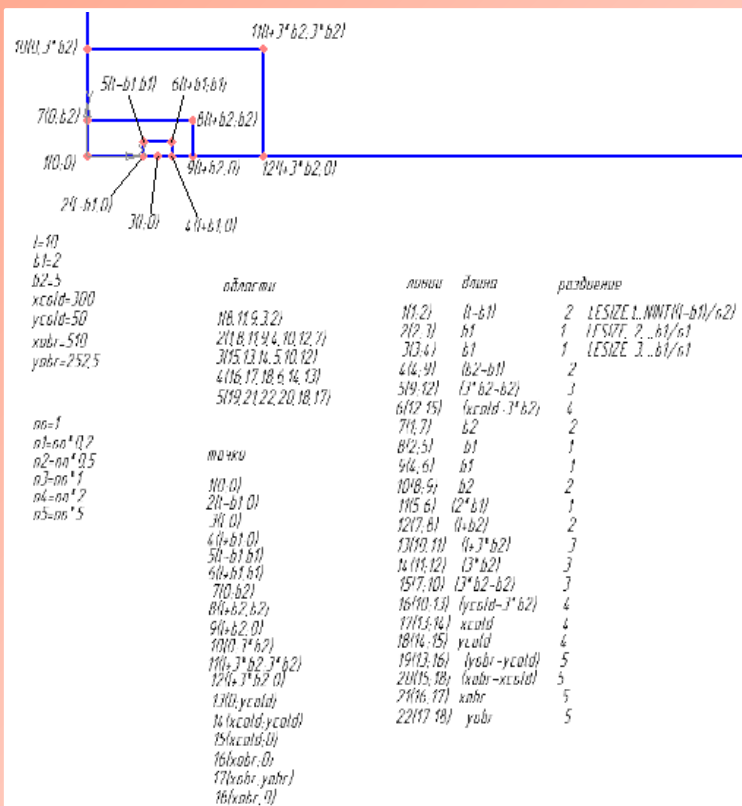 11(l+3*b2;3*b2)
10(0,3*b2)
5(l-b1;b1)
6(l+b1;b1)
7(0;b2)
8(l+b2;b2)
1(0;0)
9(l+b2,0)
12(l+3*b2,0)
2(l-b1,0)
3(l;0)
4(l+b1,0)
l=10
b1=2
b2=5
xcold=300
ycold=50
xobr=510
yobr=252,5
nn=1
n1=nn*0,2
n2=nn*0,5
n3=nn*1
n4=nn*2
n5=nn*5
области
1(8,11,9,3,2)
2(1,8,11,9,4,10,12,7)
3(15,13,14,5,10,12)
4(16,17,18,6,14,13)
5(19,21,22,20,18,17)
точки
1(0;0)
2(l-b1;0)
3(l;0)
4(l+b1;0)
5(l-b1;b1)
6(l+b1;b1)
7(0;b2)
8(l+b2;b2)
9(l+b2;0)
10(0;3*b2)
11(l+3*b2;3*b2)
12(l+3*b2;0)
13(0;ycold)
14(xcold;ycold)
15(xcold;0)
16(xobr;0)
17(xobr,yobr)
18(xobr,0)
линии длина разбиение
1(1;2) (l-b1) 2 LESIZE,1,,NINT((l-b1)/n2)
2(2;3) b1 1 LESIZE, 2,,,b1/n1
3(3;4) b1 1 LESIZE, 3,,,b1/n1
4(4;9) (b2-b1) 2
5(9;12) (3*b2-b2) 3
6(12;15) (xcold-3*b2) 4
7(1;7) b2 2
8(2;5) b1 1
9(4;6) b1 1
10(8;9) b2 2
11(5;6) (2*b1) 1
12(7;8) (l+b2) 2
13(10;11) (l+3*b2) 3
14(11;12) (3*b2) 3
15(7;10) (3*b2-b2) 3
16(10;13) (ycold-3*b2) 4
17(13;14) xcold 4
18(14;15) ycold 4
19(13;16) (yobr-ycold) 5
20(15;18) (xobr-xcold) 5
21(16;17) xobr 5
22(17;18) yobr 5